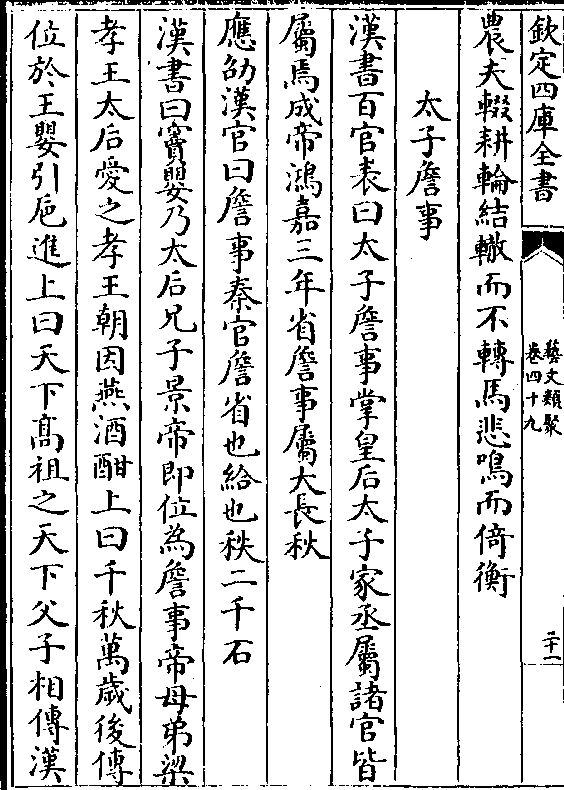 欽定四庫全書
藝文類聚
卷四十九
二十一
農夫輟耕輪結轍而不轉馬悲鳴而倚衡
太子詹事
漢書百官表曰太子詹事掌皇后太子家丞屬諸官皆
屬焉成帝鴻嘉三年省詹事屬大長秋
應劭漢官曰詹事秦官詹省也給也秩二千石
漢書曰竇嬰乃太后兄子景帝即位為詹事帝母弟梁
孝王太后愛之孝王朝因燕酒酣上曰千秋萬歲後傳
位於王嬰引巵進上曰天下髙祖之天下父子相傳漢